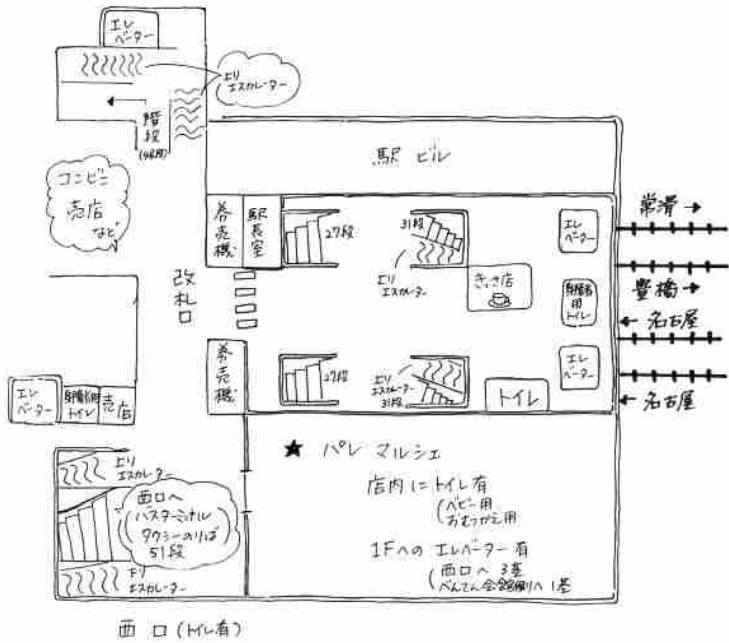 エレ
ベーター
上り
エスカレーター
階
段
コンビニ
売店
など
駅 ビル
券
売
機
駅
長
室
27段
31段
上り
エスカレーター
きっさ店
エレ
ベーター
常滑 →
豊橋 →
← 名古屋
← 名古屋
身障者
用
トイレ
エレ
ベーター
改
札
口
券
売
機
27段
上り
エスカレーター
31段
トイレ
エレ
ベーター
身障者用
トイレ
売
店
上り
エスカレーター
西口へ
バスターミナル
タクシーのりば
51段
上り
エスカレーター
★ パレ マルシェ
店内にトイレ有
ベビー用
おむつかえ用
1Fへの エレベーター有
西口へ 3基
べんてん会館側へ 1基
西 口 (トイレ有)